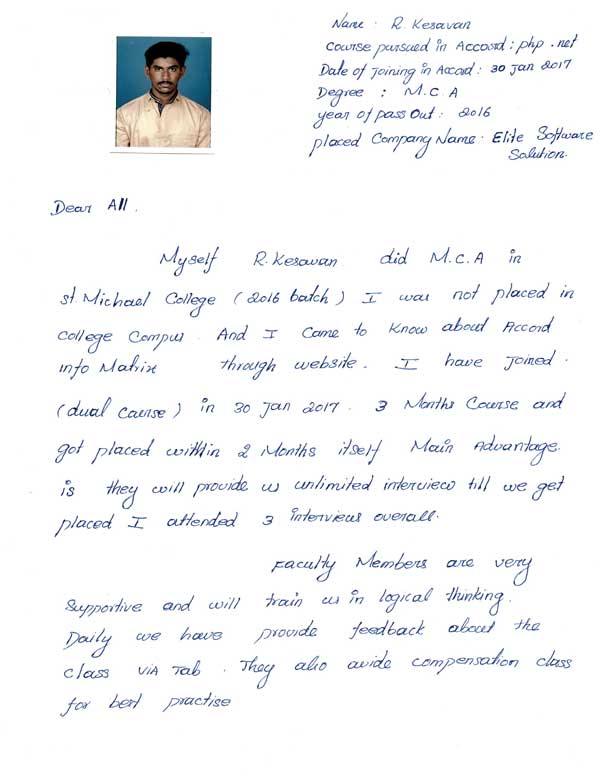 Name : R. Kesavan
Course pursued in Accord : php . net
Date of Joining in Accord : 30 Jan 2017
Degree : M.C.A
year of pass Out : 2016
placed Company Name : Elite Software
Solution.
Dear All.
Myself R. Kesavan did M.C.A in
st. Michael College (2016 batch) I was not placed in
College Compus. And I Came to know about Accord
info Matrix through website. I have joined.
(dual Course) in 30 Jan 2017. 3 Months Course and
got placed within 2 Months itself Main Advantage.
is they will provide us unlimited interview till we get
placed I attended 3 interviews overall.
Faculty Members are very
Supportive and will train us in logical thinking.
Daily we have provide feedback about the
class VIA Tab. They also avide compensation class
for best practise